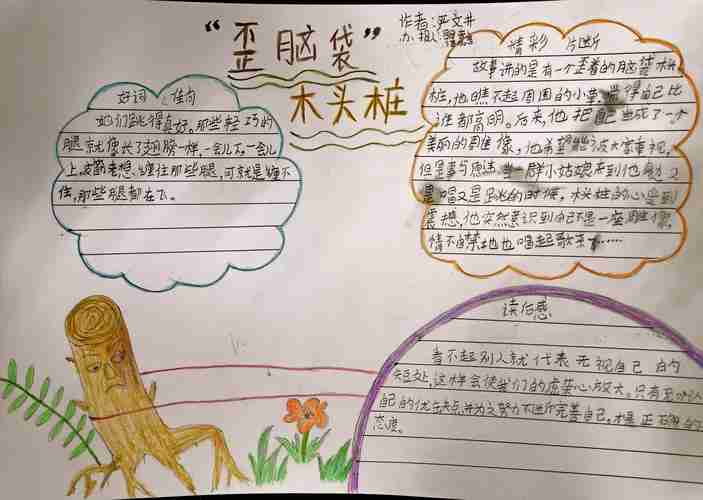 “歪脑袋”
木头桩
作者:严文井
办报人:
好词、佳句
她们跳得真好。那些轻巧的
腿就像长了翅膀一样,一会儿下,一会儿
上。皮筋老想缠住那些腿,可就是缠不
住,那些腿都在飞。
精彩片断
故事讲的是有一个歪着的脑袋木头
桩,他瞧不起周围的小草,觉得自己比
谁都高明。后来,他把自己当成了一个
美丽的周雕像,他希望能被大家重视,
但是事与愿违。当一群小姑娘来到他身边又
是唱又是跳的时候,木头桩的心受到
震撼,他突然意识到自己不是一座雕像,
情不自禁地也唱起歌来……
读后感
看不起别人就代表无视自己的
短处,这样会使我们的虚荣心放大。只有
自己的优缺点并为之努力不断完善自己,才是正确的
态度。